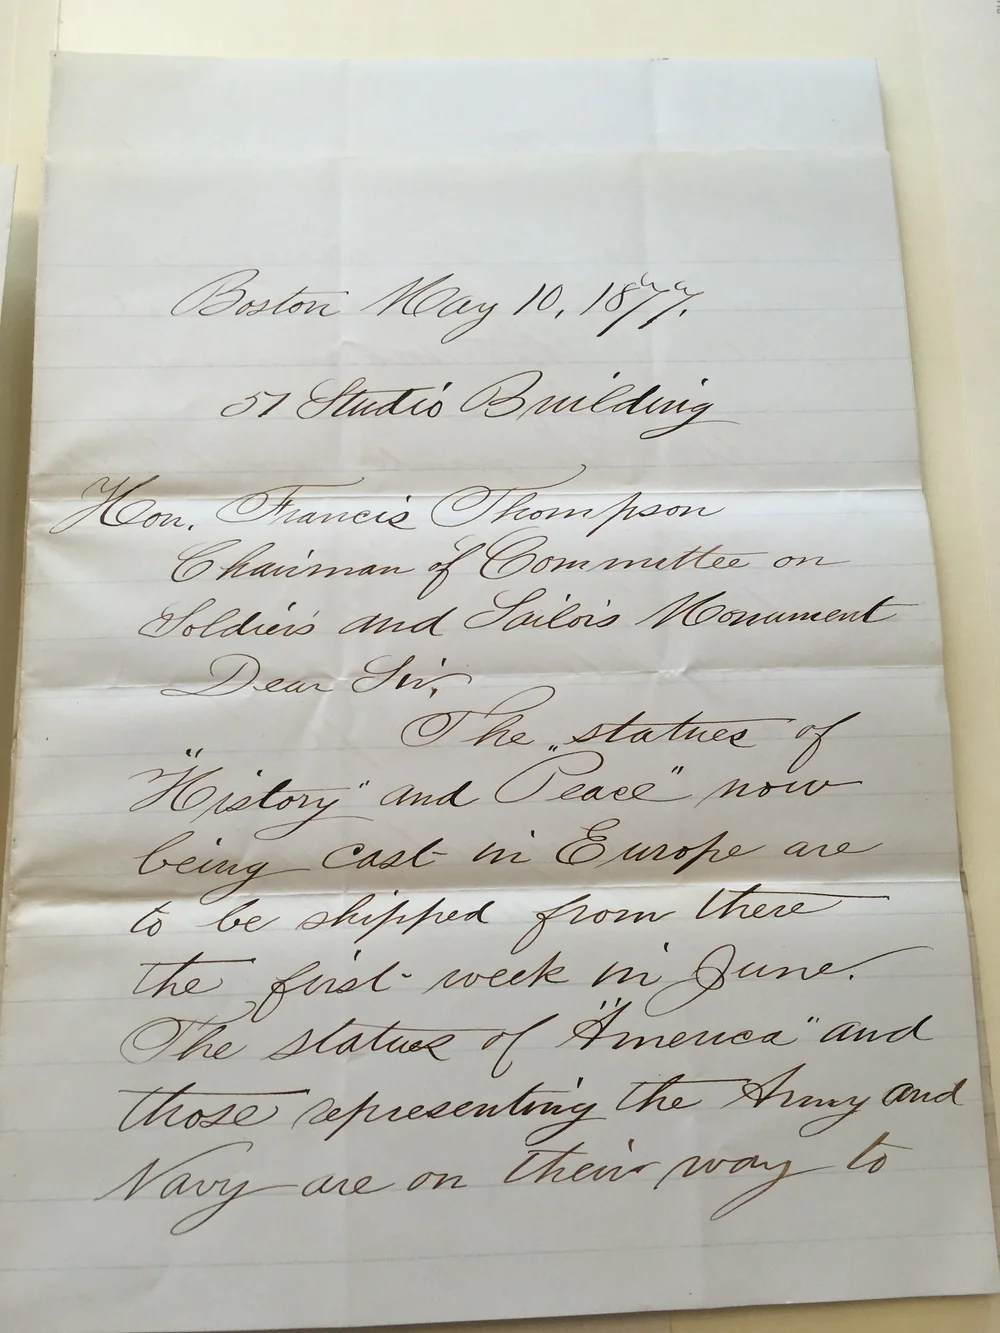 Boston May 10, 1877.
51 Studio Building
Hon. Francis Thompson
Chairman of Committee on
Soldier's and Sailor's Monument
Dear Sir,
The statues of
"History" and "Peace" now
being cast in Europe are
to be shipped from there
the first week in June.
The statues of "America" and
those representing the Army and
Navy are on their way to